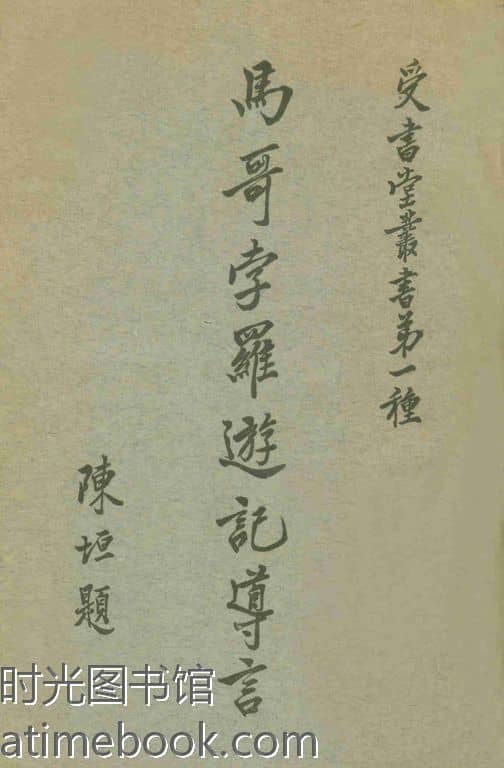 受書堂叢書第一種
馬哥孛羅遊記導言
陳垣題
时光图书馆
atimebook.com